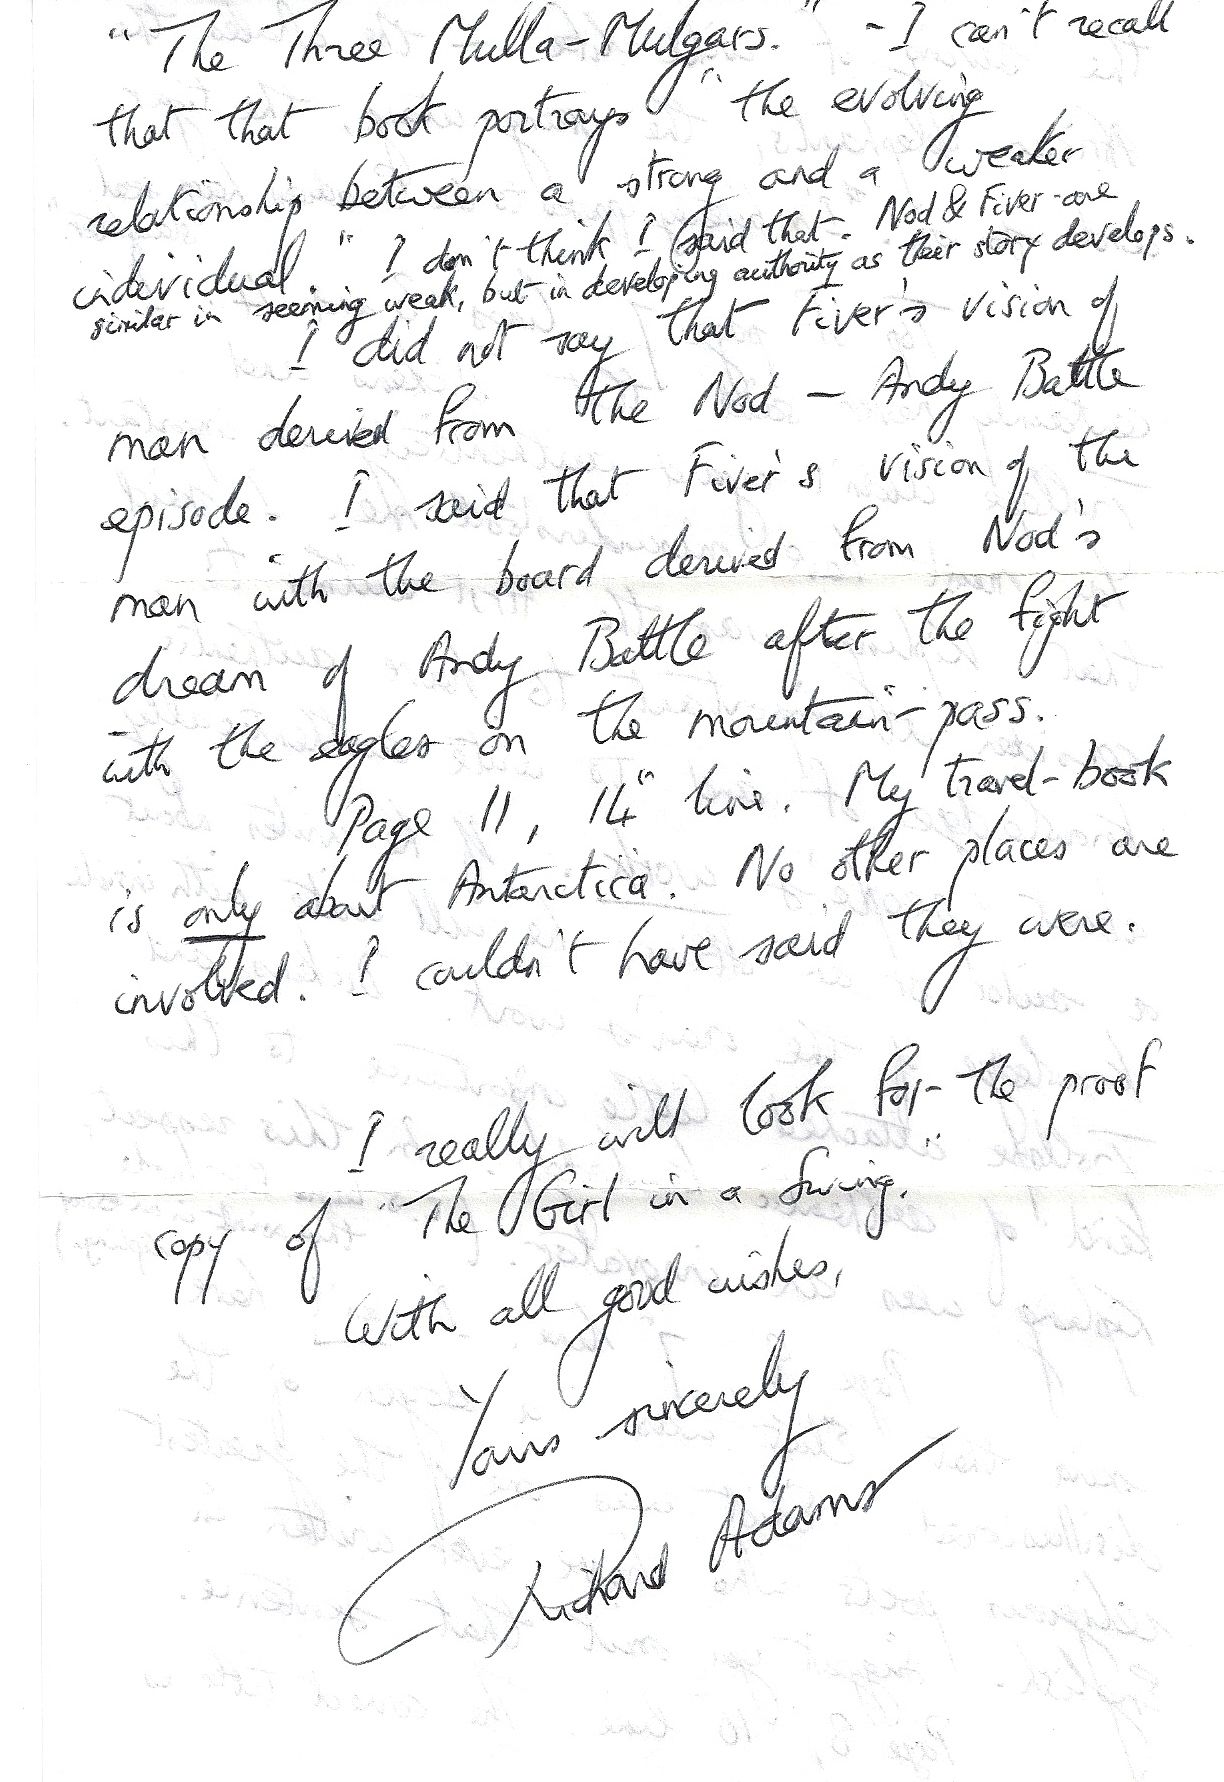 "The Three Mulla-Mulgars." - I can't recall
that that book portrays "the evolving
relationship between a strong and a weaker
individual." I don't think I said that. Nod & Fiver are
similar in seeming weak, but in developing authority as their story develops.
I did not say that Fiver's vision of
man derived from the Nod – Andy Battle
episode. I said that Fiver's vision of the
man with the board derived from Nod's
dream of Andy Battle after the fight
with the eagles on the mountain-pass.
Page 11, 14" line. My travel-book
is only about Antarctica. No other places are
involved. I couldn't have said they were.
I really will look for the proof
copy of "The Girl in a Swing."
With all good wishes,
Yours sincerely
Richard Adams